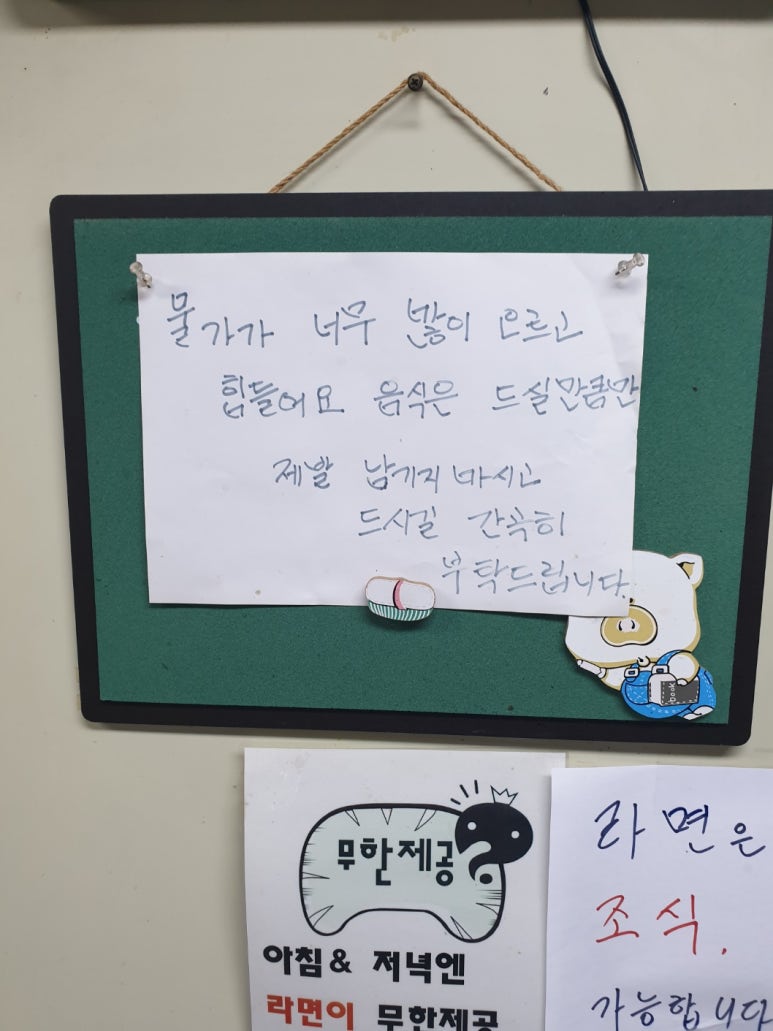 물가가 너무 많이 오르고
힘들어요 음식은 드실만큼만
제발 남기지 마시고
드시길 간곡히
부탁드립니다.
book
무한제공?
아침& 저녁엔
라면이 무한제공
라면은
조식.
가능합니다